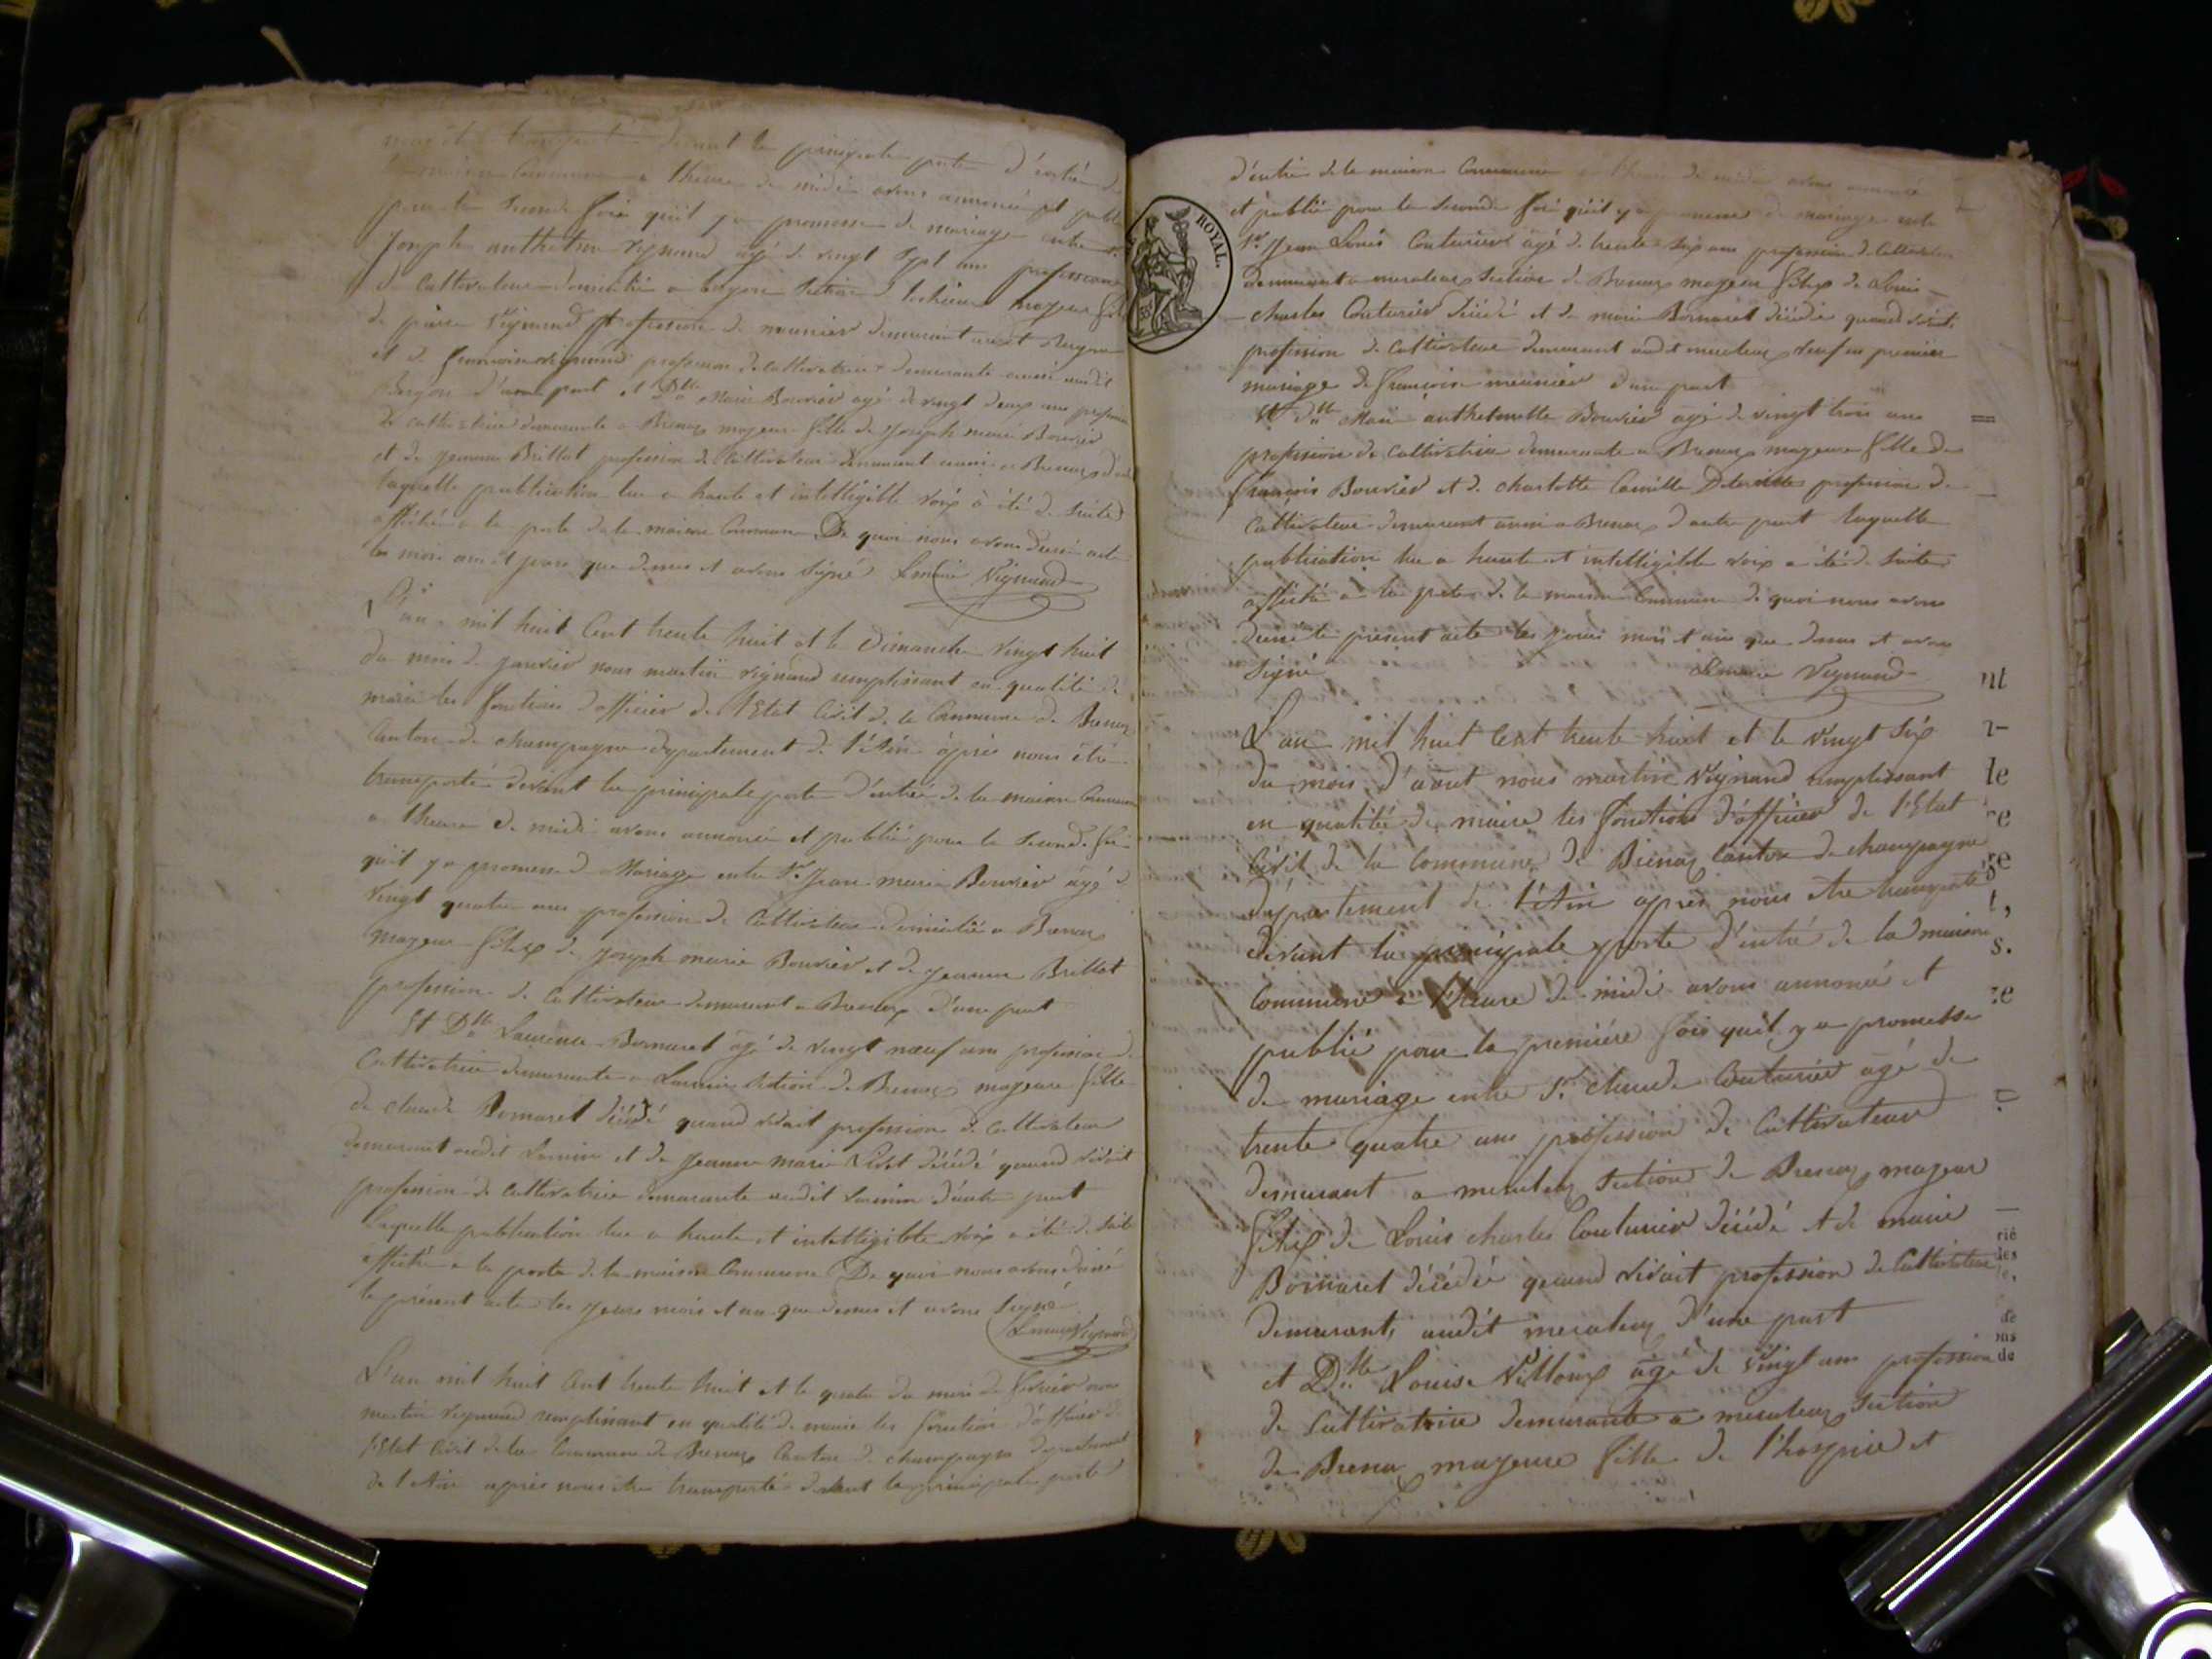 devant la principale porte d'entrée de
la maison Commune a l'heure de midi avons annoncé et publié
pour la seconde fois quil y a promesse de mariage entre Sr
Joseph anthelme Vignand agé de vingt sept ans profession
de Cultivateur domicilié a mayeur fils
de pierre Vignand profession de meunier demeurant audit
et de françoise vignand profession de cultivatrice demeurante aussi audit
d'une part et Dlle Marie Bouvier agé de vingt deux ans profession
de cultivatrice demeurante a Brenaz mayeure fille de Joseph marie Bouvier
et de jeanne Brillat profession de Cultivateur demeurant aussi a Brenaz d'autre
laquelle publication lue a haute et intelligible voix à été de suite
affiché a la porte de la maison Commune De quoi nous avons dressé acte
les mois an et jours que dessus et avons signé Le maire Vignand
L'an mil huit Cent trente huit et le Dimanche vingt huit
du mois de janvier nous martin vignand remplissant en qualité de
maire les fonctions d'officier de l'Etat Civil de la Commune de Brenaz
Canton de champagne departement de l'Ain après nous être
transporté devant la principale porte d'entrée de la maison Commune
a l'heure de midi avons annoncé et publié pour la seconde fois
quil y a promesse de Mariage entre Sr Jean marie Bouvier agé de
vingt quatre ans profession de Cultivateur domicilié a Brenaz
mayeur fils de Joseph marie Bouvier et de jeanne Brillat
profession de Cultivateur demeurant a Brenaz d'une part
Et Dlle Laurence Bornaret agé de vingt neuf ans profession de
Cultivatrice demeurante a section de Brenaz mayeure fille
de claude Bornaret décédé quand vivait profession de cultivateur
demeurant audit et de jeanne marie décédé quand vivait
profession de cultivatrice demeurante audit d'autre part
Laquelle publication lue a haute et intelligible voix a été de suite
affiché a la porte de la maison Commune De quoi nous avons dressé
le présent acte les jours mois et an que dessus et avons signé
Le maire Vignand
L'an mil huit Cent trente huit et le quatre du mois de fevrier nous
martin vignand remplissant en qualité de maire les fonction d'officier de
l'Etat Civil de la Commune de Brenaz Canton de champagne departement
de l'Ain après nous etre transporté devant la principale porte
ROYAL.
d'entrée de la maison Commune a l'heure de midi avons annoncé
et publié pour la seconde fois quil y a promesse de mariage entre
Sr Jean Louis Couturier agé de trente six ans profession de Cultivateur
demeurant a section de Brenaz mayeur fils de Louis
charles Couturier décédé et de marie Bornaret décédée quand vivait
profession de cultivateur demeurant audit veuf en premier
mariage de françoise meunier d'une part
Et Dlle Marie anthelmette Bouvier agé de vingt trois ans
profession de cultivatrice demeurante a Brenaz mayeure fille de
françois Bouvier et de charlotte Camille profession de
Cultivateur demeurant aussi a Brenaz d'autre part laquelle
publication lue a haute et intelligible voix a été de suite
affiché a la porte de la maison Commune de quoi nous avons
dressé le présent acte les jours mois et an que dessus et avons
signé Le maire Vignand
L'an mil huit Cent trente huit et le vingt six
du mois d'aout nous martin Vignand remplissant
en qualité de maire les fonction d'officier de l'Etat
Civil de la Commune de Brenaz Canton de champagne
departement de l'Ain après nous etre transporté
devant la principale porte d'entré de la maison
Commune a l'heure de midi avons annoncé et
publié pour la première fois quil y a promesse
de mariage entre Sr claude Couturier agé de
trente quatre ans profession de Cultivateur
demeurant a section de Brenaz mayeur
fils de Louis charles Couturier décédé et de marie
Bornaret décédée quand vivait profession de Cultivateur
demeurant audit d'une part
et Dlle Louise agé de vingt ans profession
de Cultivatrice demeurante a section
de Brenaz mayeure fille de l'hospice et
nt
le
re
s.
ze
rié
des
de
ms
de